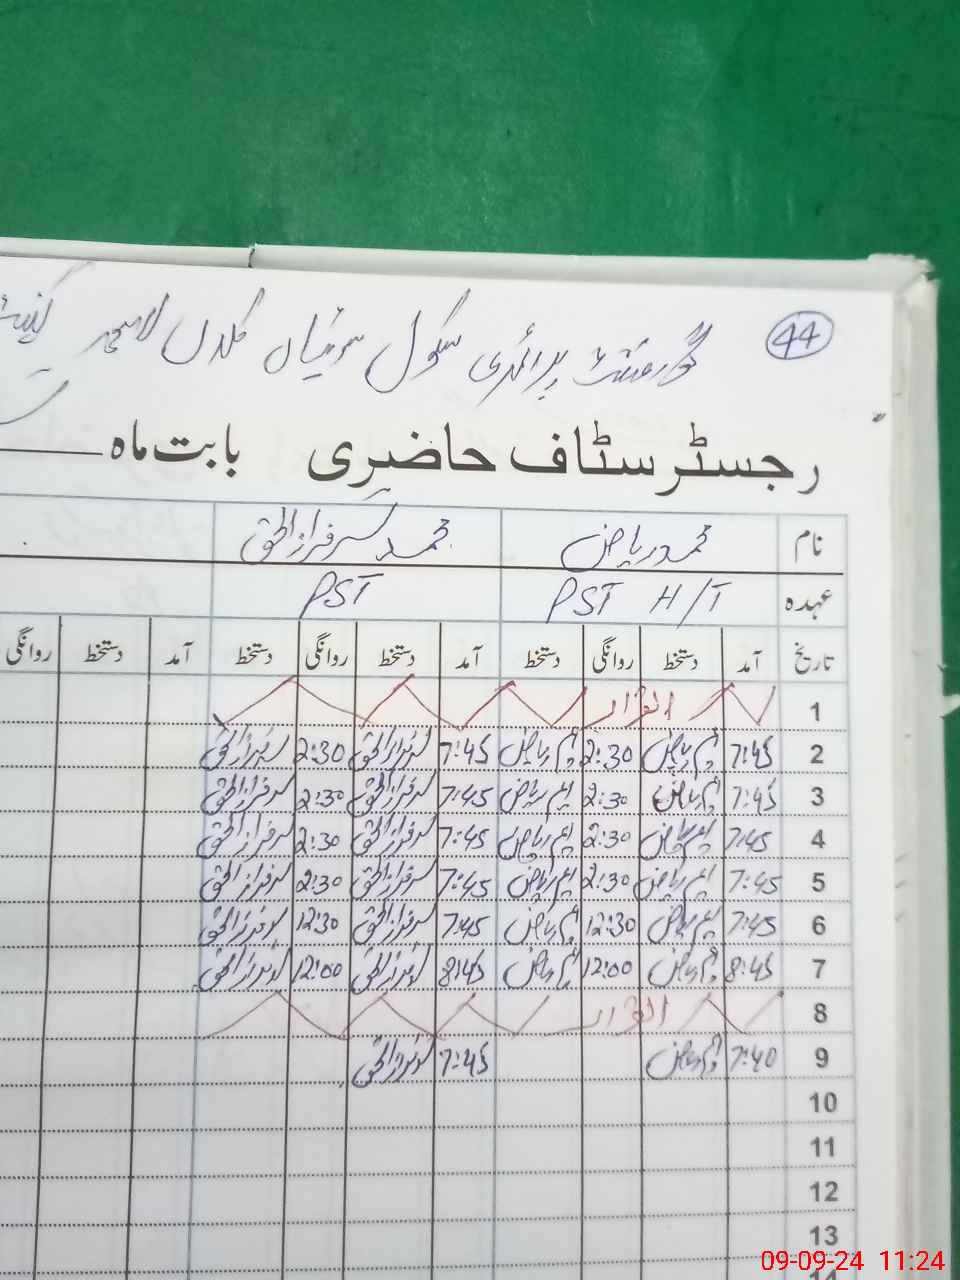 44
گورنمنٹ پرائمری سکول کلاں
رجسٹر سٹاف حاضری بابت ماہ
نام محمد ریاض محمد سرفراز الحق
عہدہ PST H/T PST
تاریخ آمد دستخط روانگی دستخط آمد دستخط روانگی دستخط آمد دستخط روانگی
1 اتوار
2 7:45 ایم ریاض 2:30 ایم ریاض 7:45 سرفراز الحق 2:30 سرفراز الحق
3 7:45 ایم ریاض 2:30 ایم ریاض 7:45 سرفراز الحق 2:30 سرفراز الحق
4 7:45 ایم ریاض 2:30 ایم ریاض 7:45 سرفراز الحق 2:30 سرفراز الحق
5 7:45 ایم ریاض 2:30 ایم ریاض 7:45 سرفراز الحق 2:30 سرفراز الحق
6 7:45 ایم ریاض 12:30 ایم ریاض 7:45 سرفراز الحق 12:30 سرفراز الحق
7 8:45 ایم ریاض 12:00 ایم ریاض 8:45 سرفراز الحق 12:00 سرفراز الحق
8 اتوار
9 7:40 ایم ریاض 7:45 سرفراز الحق
10
11
12
13
14
09-09-24 11:24